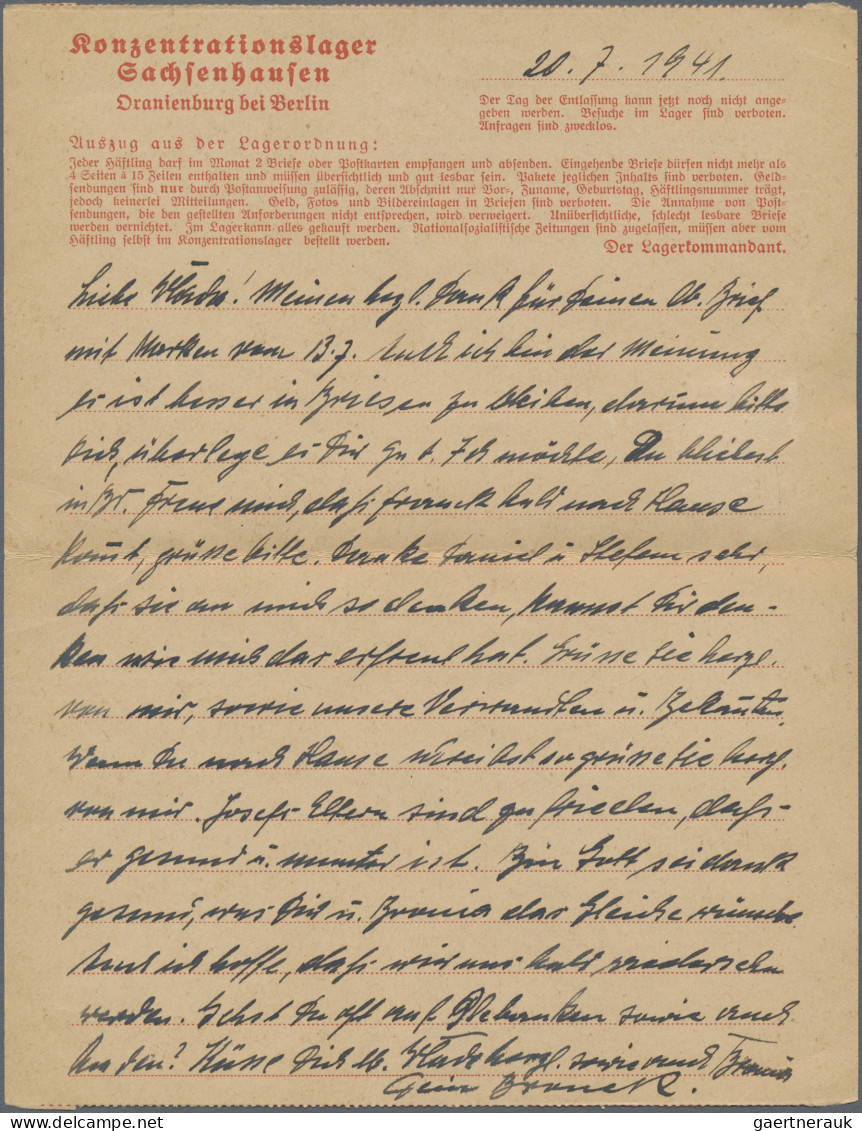 Konzentrationslager
Sachsenhausen
Oranienburg bei Berlin
20. 7. 1941.
Der Tag der Entlassung kann jetzt noch nicht ange=
geben werden. Besuche im Lager sind verboten.
Anfragen sind zwecklos.
Auszug aus der Lagerordnung:
Jeder Häftling darf im Monat 2 Briefe oder Postkarten empfangen und absenden. Eingehende Briefe dürfen nicht mehr als
4 Seiten à 15 Zeilen enthalten und müssen übersichtlich und gut lesbar sein. Pakete jeglichen Inhalts sind verboten. Geld=
sendungen sind nur durch Postanweisung zulässig, deren Abschnitt nur Vor=, Zuname, Geburtstag, Häftlingsnummer trägt,
jedoch keinerlei Mitteilungen. Geld, Fotos und Bildereinlagen in Briefen sind verboten. Die Annahme von Post=
sendungen, die den gestellten Anforderungen nicht entsprechen, wird verweigert. Unübersichtliche, schlecht lesbare Briefe
werden vernichtet. Im Lager kann alles gekauft werden. Nationalsozialistische Zeitungen sind zugelassen, müssen aber vom
Häftling selbst im Konzentrationslager bestellt werden.
Der Lagerkommandant.
Liebe Wladu! Meinen herzl. Dank für Deinen lb. Brief
mit Marken vom 13.7. Auch ich bin der Meinung
es ist besser in Briesen zu bleiben, darum bitte
Dich, überlege es Dir gut. Ich möchte, Du bleibest
in Br. Freue mich, daß Franek bald nach Hause
komt, grüsse bitte. Danke Daniel u Stefan sehr,
daß sie an mich so denken, kannst Dir den-
ken wie mich das erfreut hat. Grüsse sie herzl.
von mir, sowie unsere Verwandten u. Bekanten.
Wenn Du nach Hause schreibst so grüsse sie herzl.
von mir. Josefs Eltern sind zufrieden, daß
er gesund u. munter ist. Bin Gott sei dank
gesund, was Dir u. Bronia das Gleiche wünsche.
Auch ich hoffe, daß wir uns bald wiedersehn
werden. Gehst Du oft auf sowie auch
baden? Küsse Dich lb. herzl. sowie auch Bronia
Dein Broneck.
gaertnerauk